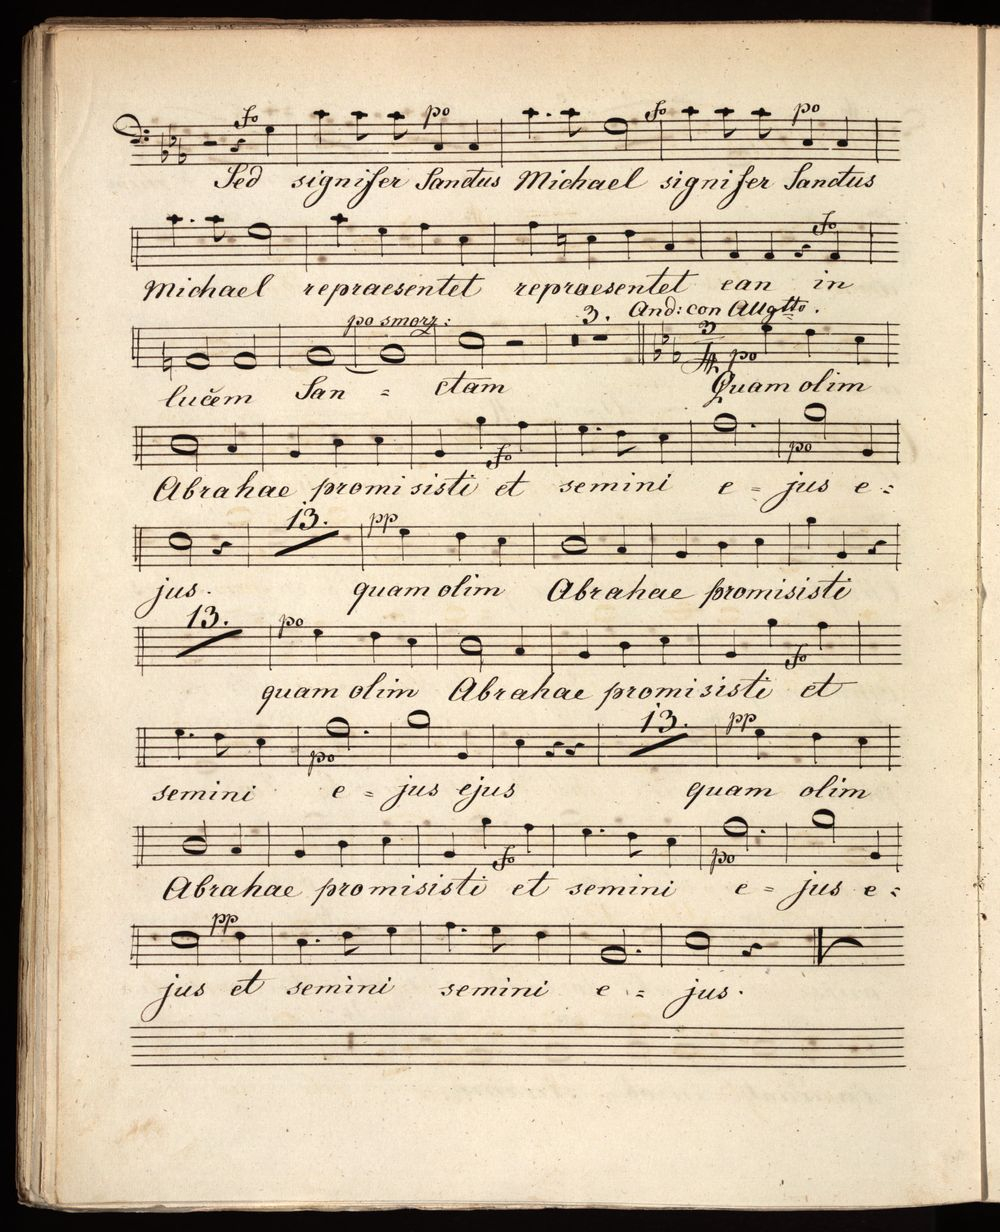 fo po fo po
Sed signifer Sanctus Michael signifer Sanctus
fo
Michael repraesentet repraesentet ean in
po smorz: 3. And: con Allgtto. 3 po
lucem San = ctam Quam olim
fo po
Abrahae promisisti et semini e = jus e =
13. pp
jus. quam olim Abrahae promisisti
13. po fo
quam olim Abrahae promisisti et
po 13. pp
semini e = jus ejus quam olim
fo po
Abrahae promisisti et semini e = jus e =
pp
jus et semini semini e = jus.